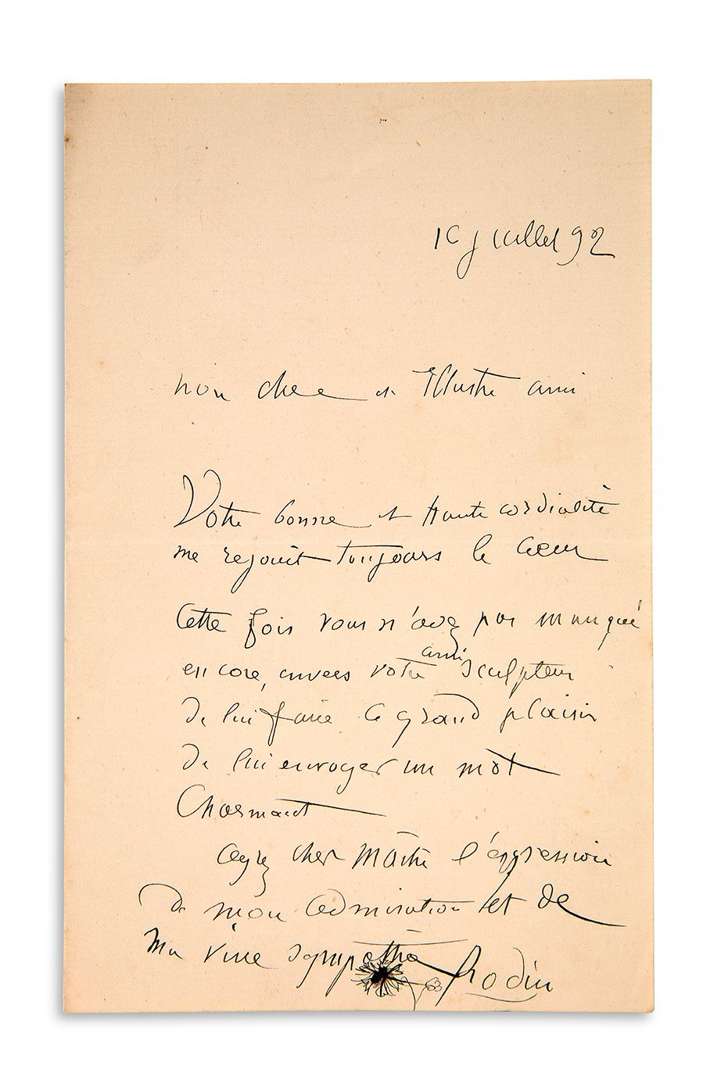 juillet 92
mon cher et Illustre ami
Votre bonne et haute cordialité
me rejouit toujours le coeur
Cette fois vous n'avez pas manqué
encore, envers votre ami sculpteur
de lui faire le grand plaisir
de lui envoyer un mot
Charmant
cher Maître l'expression
de mon admiration et de
Ma vive sympathie Rodin